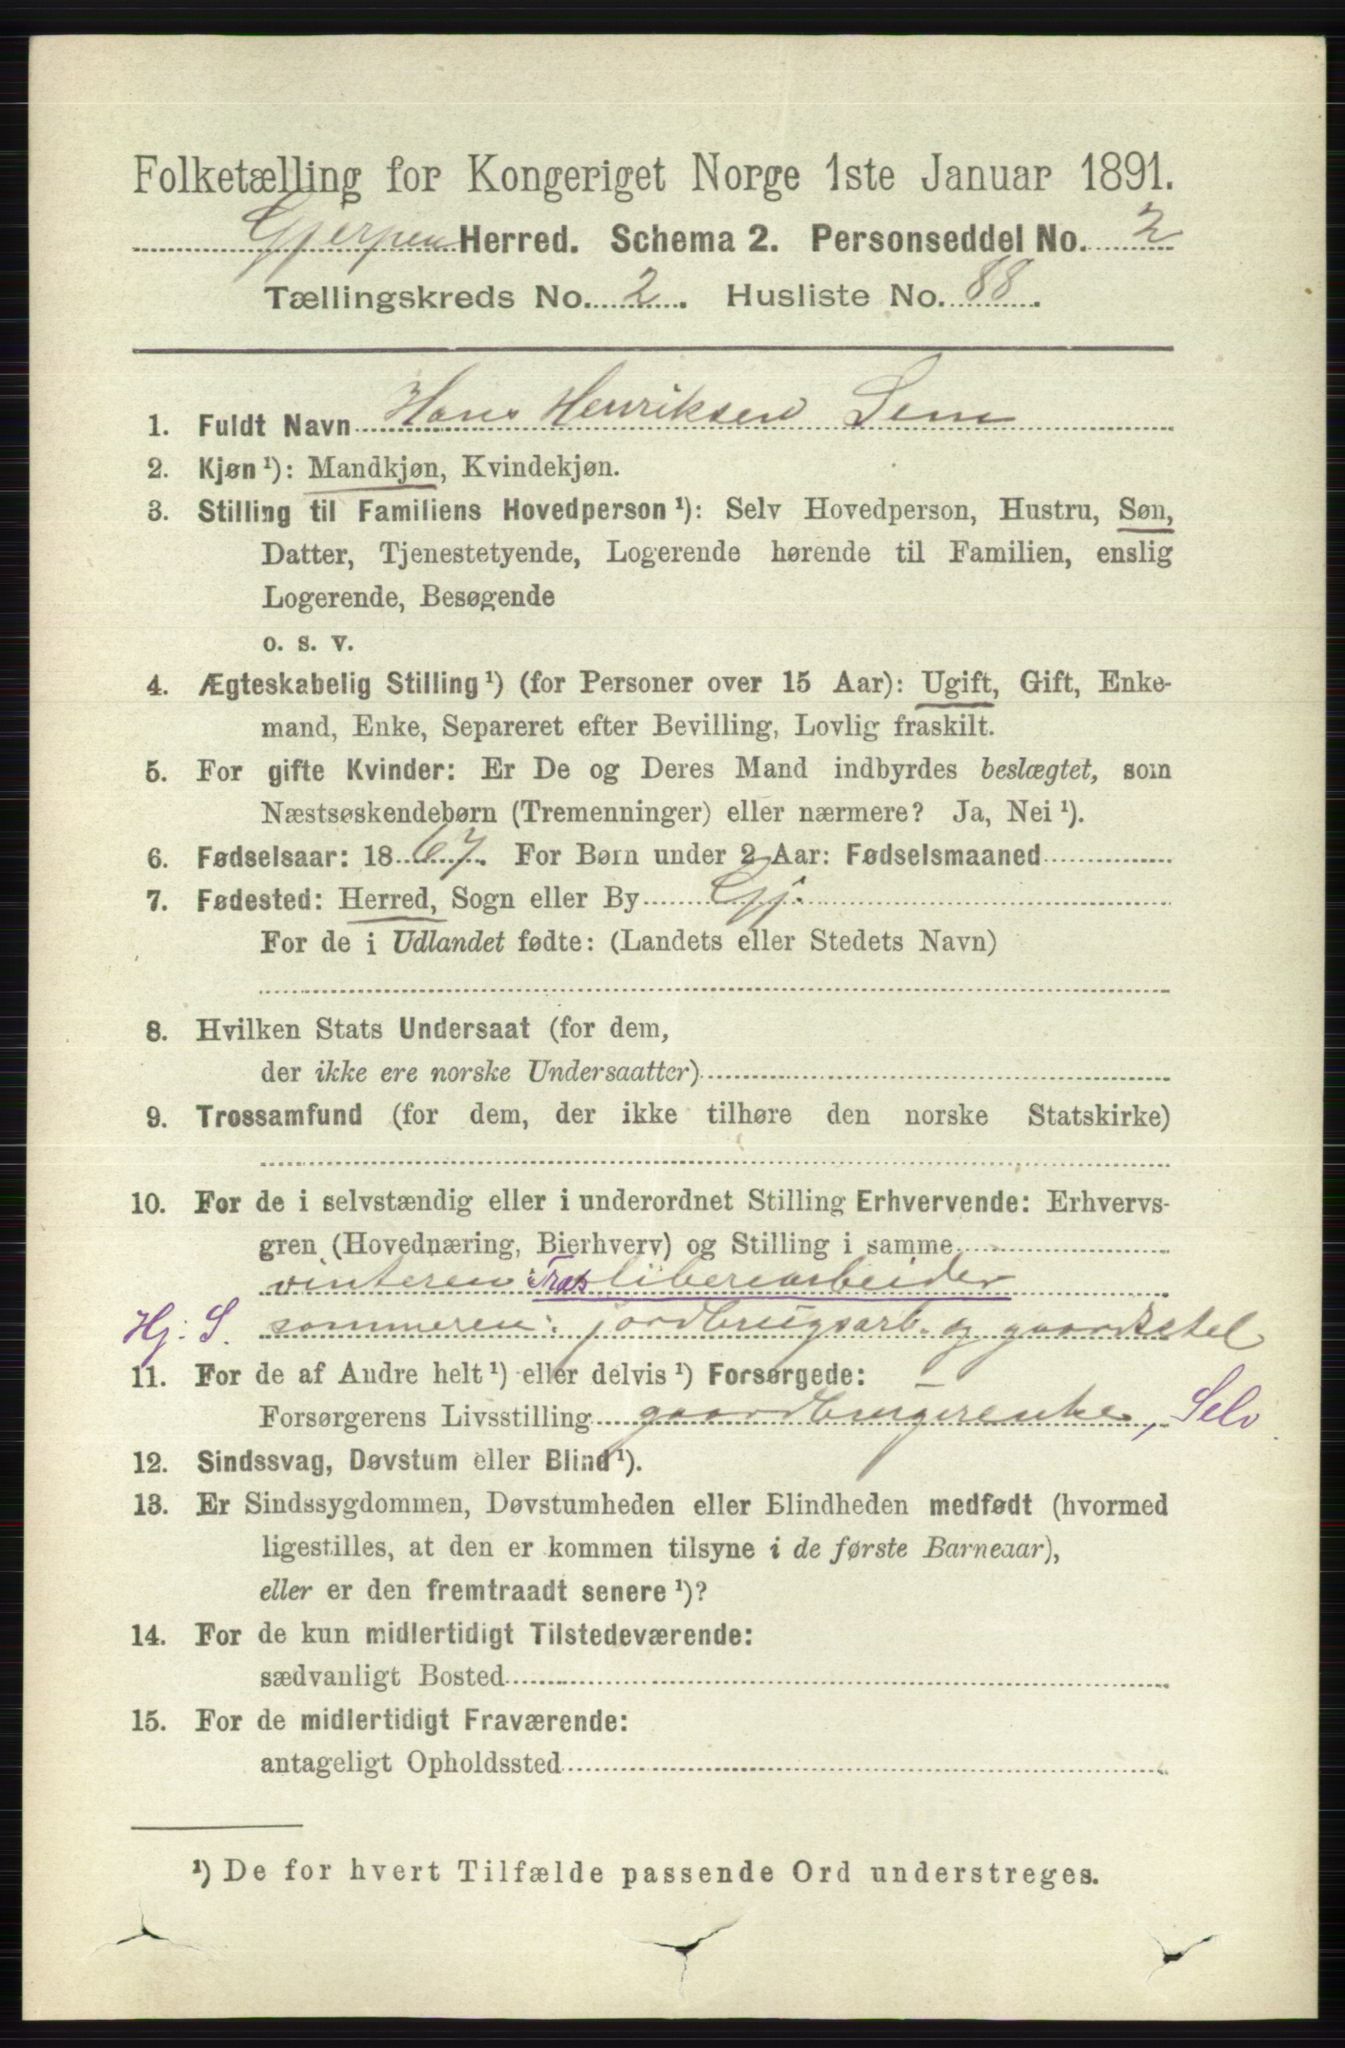 Folketælling for Kongeriget Norge 1ste Januar 1891.
Gjerpen Herred. Schema 2. Personseddel No. 2
Tællingskreds No. 2. Husliste No. 88.
1. Fuldt Navn Hans Henriksen Sem
2. Kjøn ¹): Mandkjøn, Kvindekjøn.
3. Stilling til Familiens Hovedperson ¹): Selv Hovedperson, Hustru, Søn,
Datter, Tjenestetyende, Logerende hørende til Familien, enslig
Logerende, Besøgende
o. s. v.
4. Ægteskabelig Stilling ¹) (for Personer over 15 Aar): Ugift, Gift, Enke-
mand, Enke, Separeret efter Bevilling, Lovlig fraskilt.
5. For gifte Kvinder: Er De og Deres Mand indbyrdes beslægtet, som
Næstsøskendebørn (Tremenninger) eller nærmere? Ja, Nei ¹).
6. Fødselsaar: 1867. For Børn under 2 Aar: Fødselsmaaned
7. Fødested: Herred, Sogn eller By Gj.
For de i Udlandet fødte: (Landets eller Stedets Navn)
8. Hvilken Stats Undersaat (for dem,
der ikke ere norske Undersaatter)
9. Trossamfund (for dem, der ikke tilhøre den norske Statskirke)
10. For de i selvstændig eller i underordnet Stilling Erhvervende: Erhvervs-
gren (Hovednæring, Bierhverv) og Stilling i samme
vinteren: Træsliberiarbeider
Hj: S. sommeren: jordbrugsarb. og gaardsstel
11. For de af Andre helt ¹) eller delvis ¹) Forsørgede:
Forsørgerens Livsstilling gaardbrugerenke, Selv
12. Sindssvag, Døvstum eller Blind ¹).
13. Er Sindssygdommen, Døvstumheden eller Blindheden medfødt (hvormed
ligestilles, at den er kommen tilsyne i de første Barneaar),
eller er den fremtraadt senere ¹)?
14. For de kun midlertidigt Tilstedeværende:
sædvanligt Bosted
15. For de midlertidigt Fraværende:
antageligt Opholdssted
¹) De for hvert Tilfælde passende Ord understreges.